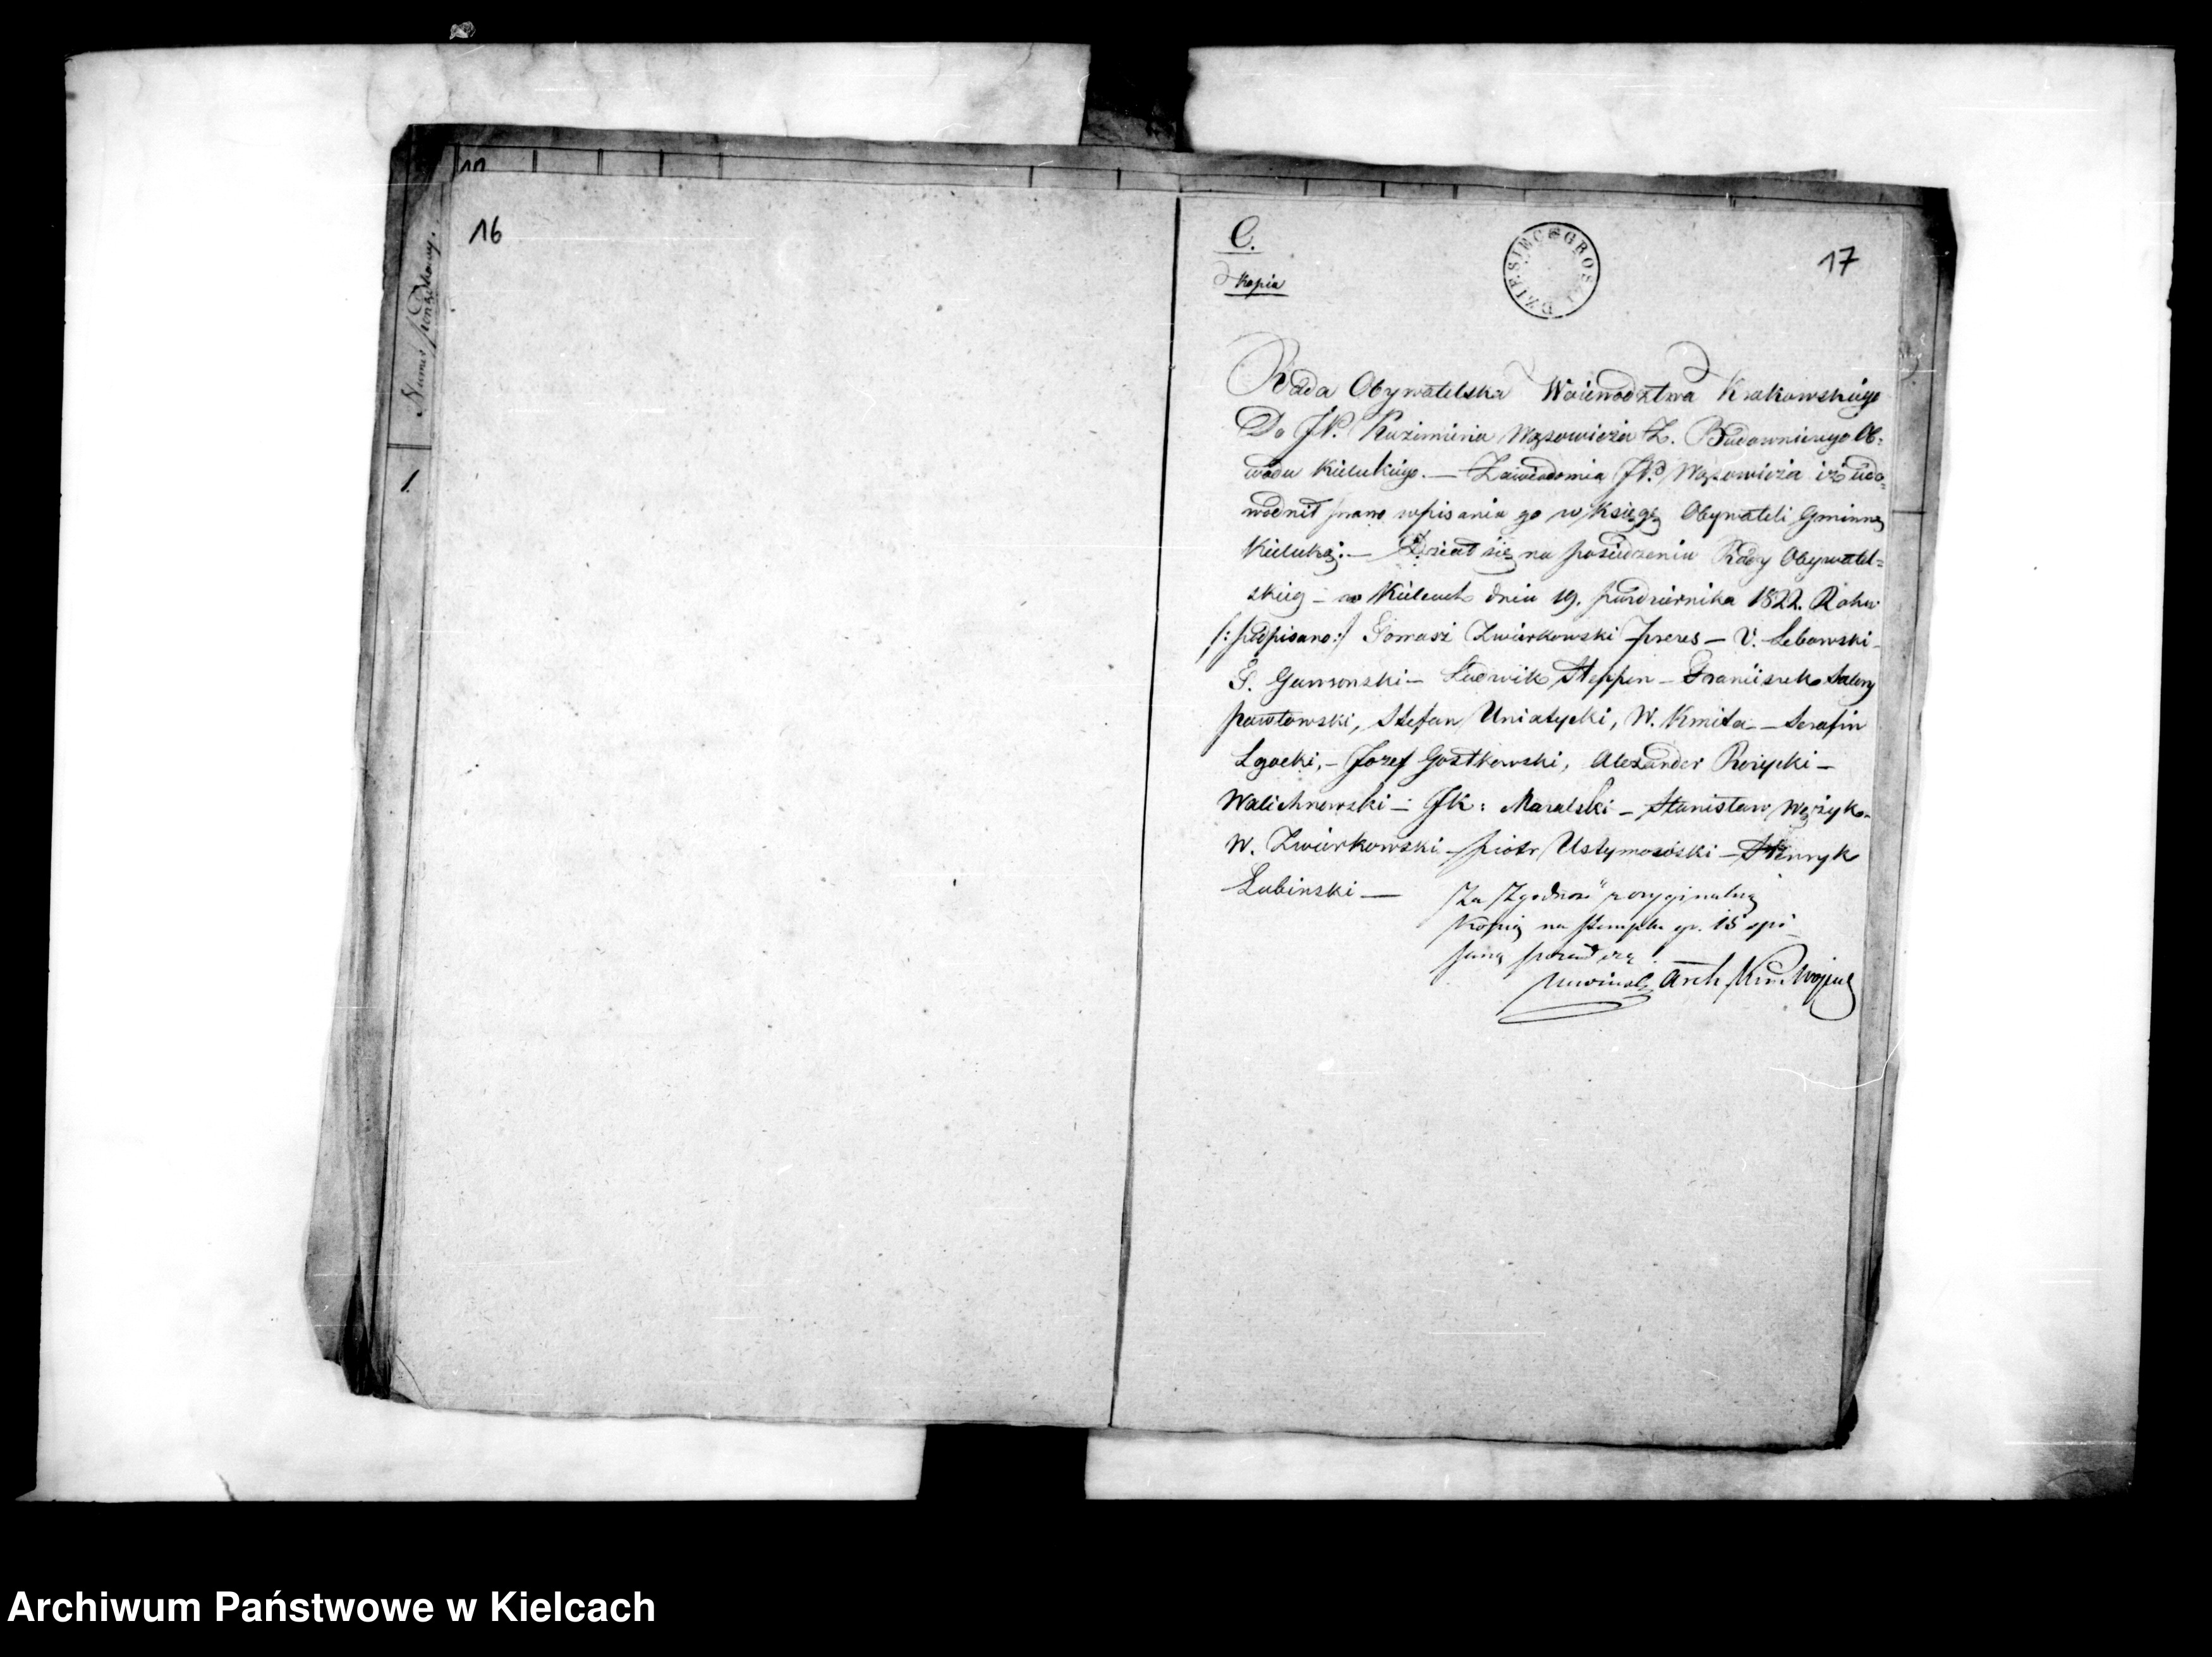 16
Numer porządkowy.
1.
C.
Kopia
DZIESIĘĆ GROSZY
17
Rada Obywatelska Woiewodztwa Krakowskiego
Do JP. Kazimierza Wąsowicza Z. Budowniczego Ob-
wodu Kieleckiego. — Zawiadomia JP. Wąsowicza iż udo-
wodnił prawo wpisania go w Księgę Obywateli Gminny
Kieleckiej. — Dział się na posiedzeniu Rady Obywatel-
skiey — w Kielcach dnia 19. Pazdziernika 1822. Roku
/: podpisano :/ Tomasz Zwierkowski Prezes — V. Lebowski —
Ludwik Steppen — Franciszek Salezy
Pawłowski, Stefan Uniatycki, W. Kmita — Serafin
Lgocki, — Jozef Gostkowski, Alexander Rożycki —
Walichnowski — JK: Maralski — Stanisław Wężyk —
W. Zwierkowski — Piotr Ustymowski — Henryk
Łubinski —
Za Zgodność z oryginalną
Kopią na stemplu gr. 15 spi
saną
Archiwum Państwowe w Kielcach